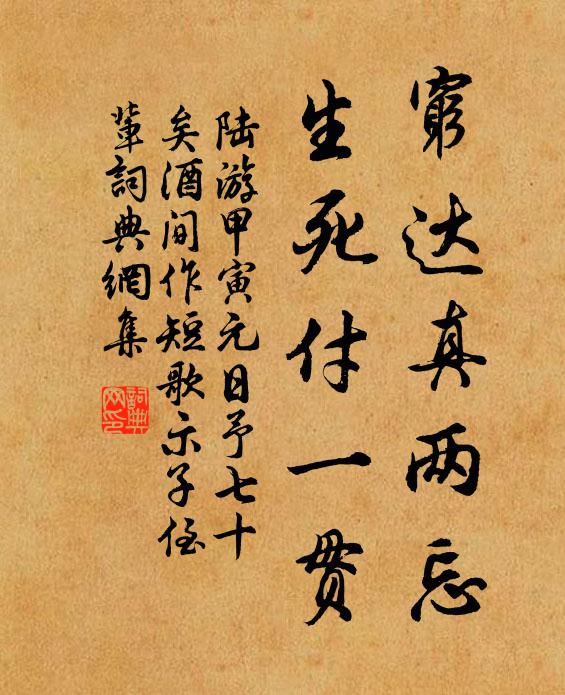 窮达真两忘
生死付一贯
陆游甲寅元日予七十
矣酒间作短歌示子侄
辈詞典網集
詞典网印